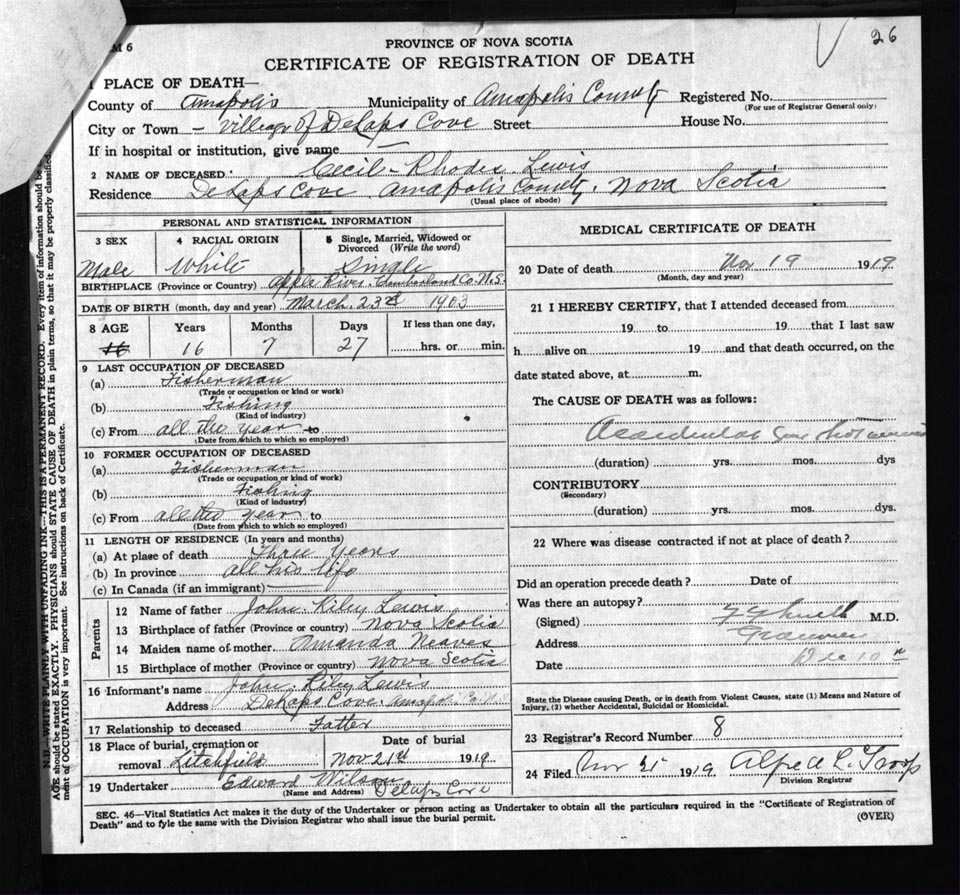 M 6
26
PROVINCE OF NOVA SCOTIA
CERTIFICATE OF REGISTRATION OF DEATH
1 PLACE OF DEATH—
County of Annapolis Municipality of Annapolis County Registered No.
(For use of Registrar General only)
City or Town – Village of DeLaps Cove Street House No.
If in hospital or institution, give name —
2 NAME OF DECEASED Cecil Rhodes Lewis
Residence DeLaps Cove Annapolis County. Nova Scotia
(Usual place of abode)
PERSONAL AND STATISTICAL INFORMATION
3 SEX 4 RACIAL ORIGIN 5 Single, Married, Widowed or Divorced (Write the word)
Male White Single
BIRTHPLACE (Province or Country) Apple River. Cumberland Co. N.S.
DATE OF BIRTH (month, day and year) March 23rd 1903
8 AGE Years Months Days If less than one day,
16 16 7 27 hrs. or min.
9 LAST OCCUPATION OF DECEASED
(a) Fisherman
(Trade or occupation or kind or work)
(b) Fishing
(Kind of industry)
(c) From all the year to
(Date from which to which so employed)
10 FORMER OCCUPATION OF DECEASED
(a) Fisherman
(Trade or occupation or kind of work)
(b) Fishing
(Kind of industry)
(c) From all the year to
(Date from which to which so employed)
11 LENGTH OF RESIDENCE (In years and months)
(a) At place of death Three Years
(b) In province all his life
(c) In Canada (if an immigrant)
Parents
12 Name of father John Riley Lewis
13 Birthplace of father (Province or country) Nova Scotia
14 Maiden name of mother Amanda Neaves
15 Birthplace of mother (Province or country) Nova Scotia
16 Informant's name John Riley Lewis
Address DeLaps Cove. Annapolis Co. N.S.
17 Relationship to deceased Father
18 Place of burial, cremation or removal Litchfield Date of burial Nov 21st 1919
19 Undertaker Edward Wilson DeLaps Cove
(Name and Address)
MEDICAL CERTIFICATE OF DEATH
20 Date of death Nov 19 1919.
(Month, day and year)
21 I HEREBY CERTIFY, that I attended deceased from
19 to 19 that I last saw
h alive on 19 and that death occurred, on the
date stated above, at m.
The CAUSE OF DEATH was as follows:
Accidental gun shot wound
(duration) yrs. mos. dys
CONTRIBUTORY
(Secondary)
(duration) yrs. mos. dys.
22 Where was disease contracted if not at place of death?
Did an operation precede death? Date of
Was there an autopsy?
(Signed) M.D.
Address
Date Dec 10th
State the Disease causing Death, or in death from Violent Causes, state (1) Means and Nature of Injury, (2) whether Accidental, Suicidal or Homicidal.
23 Registrar's Record Number 8
24 Filed Nov 1919. Alfred L. Troop
Division Registrar
SEC. 46—Vital Statistics Act makes it the duty of the Undertaker or person acting as Undertaker to obtain all the particulars required in the "Certificate of Registration of
Death" and to fyle the same with the Division Registrar who shall issue the burial permit.
(OVER)
WRITE PLAINLY WITH UNFADING INK—THIS IS A PERMANENT RECORD. Every item of information should be
AGE should be stated EXACTLY. PHYSICIANS should STATE CAUSE OF DEATH in plain terms, so that it may be properly classified.
ment of OCCUPATION is very important. See instructions on back of Certificate.